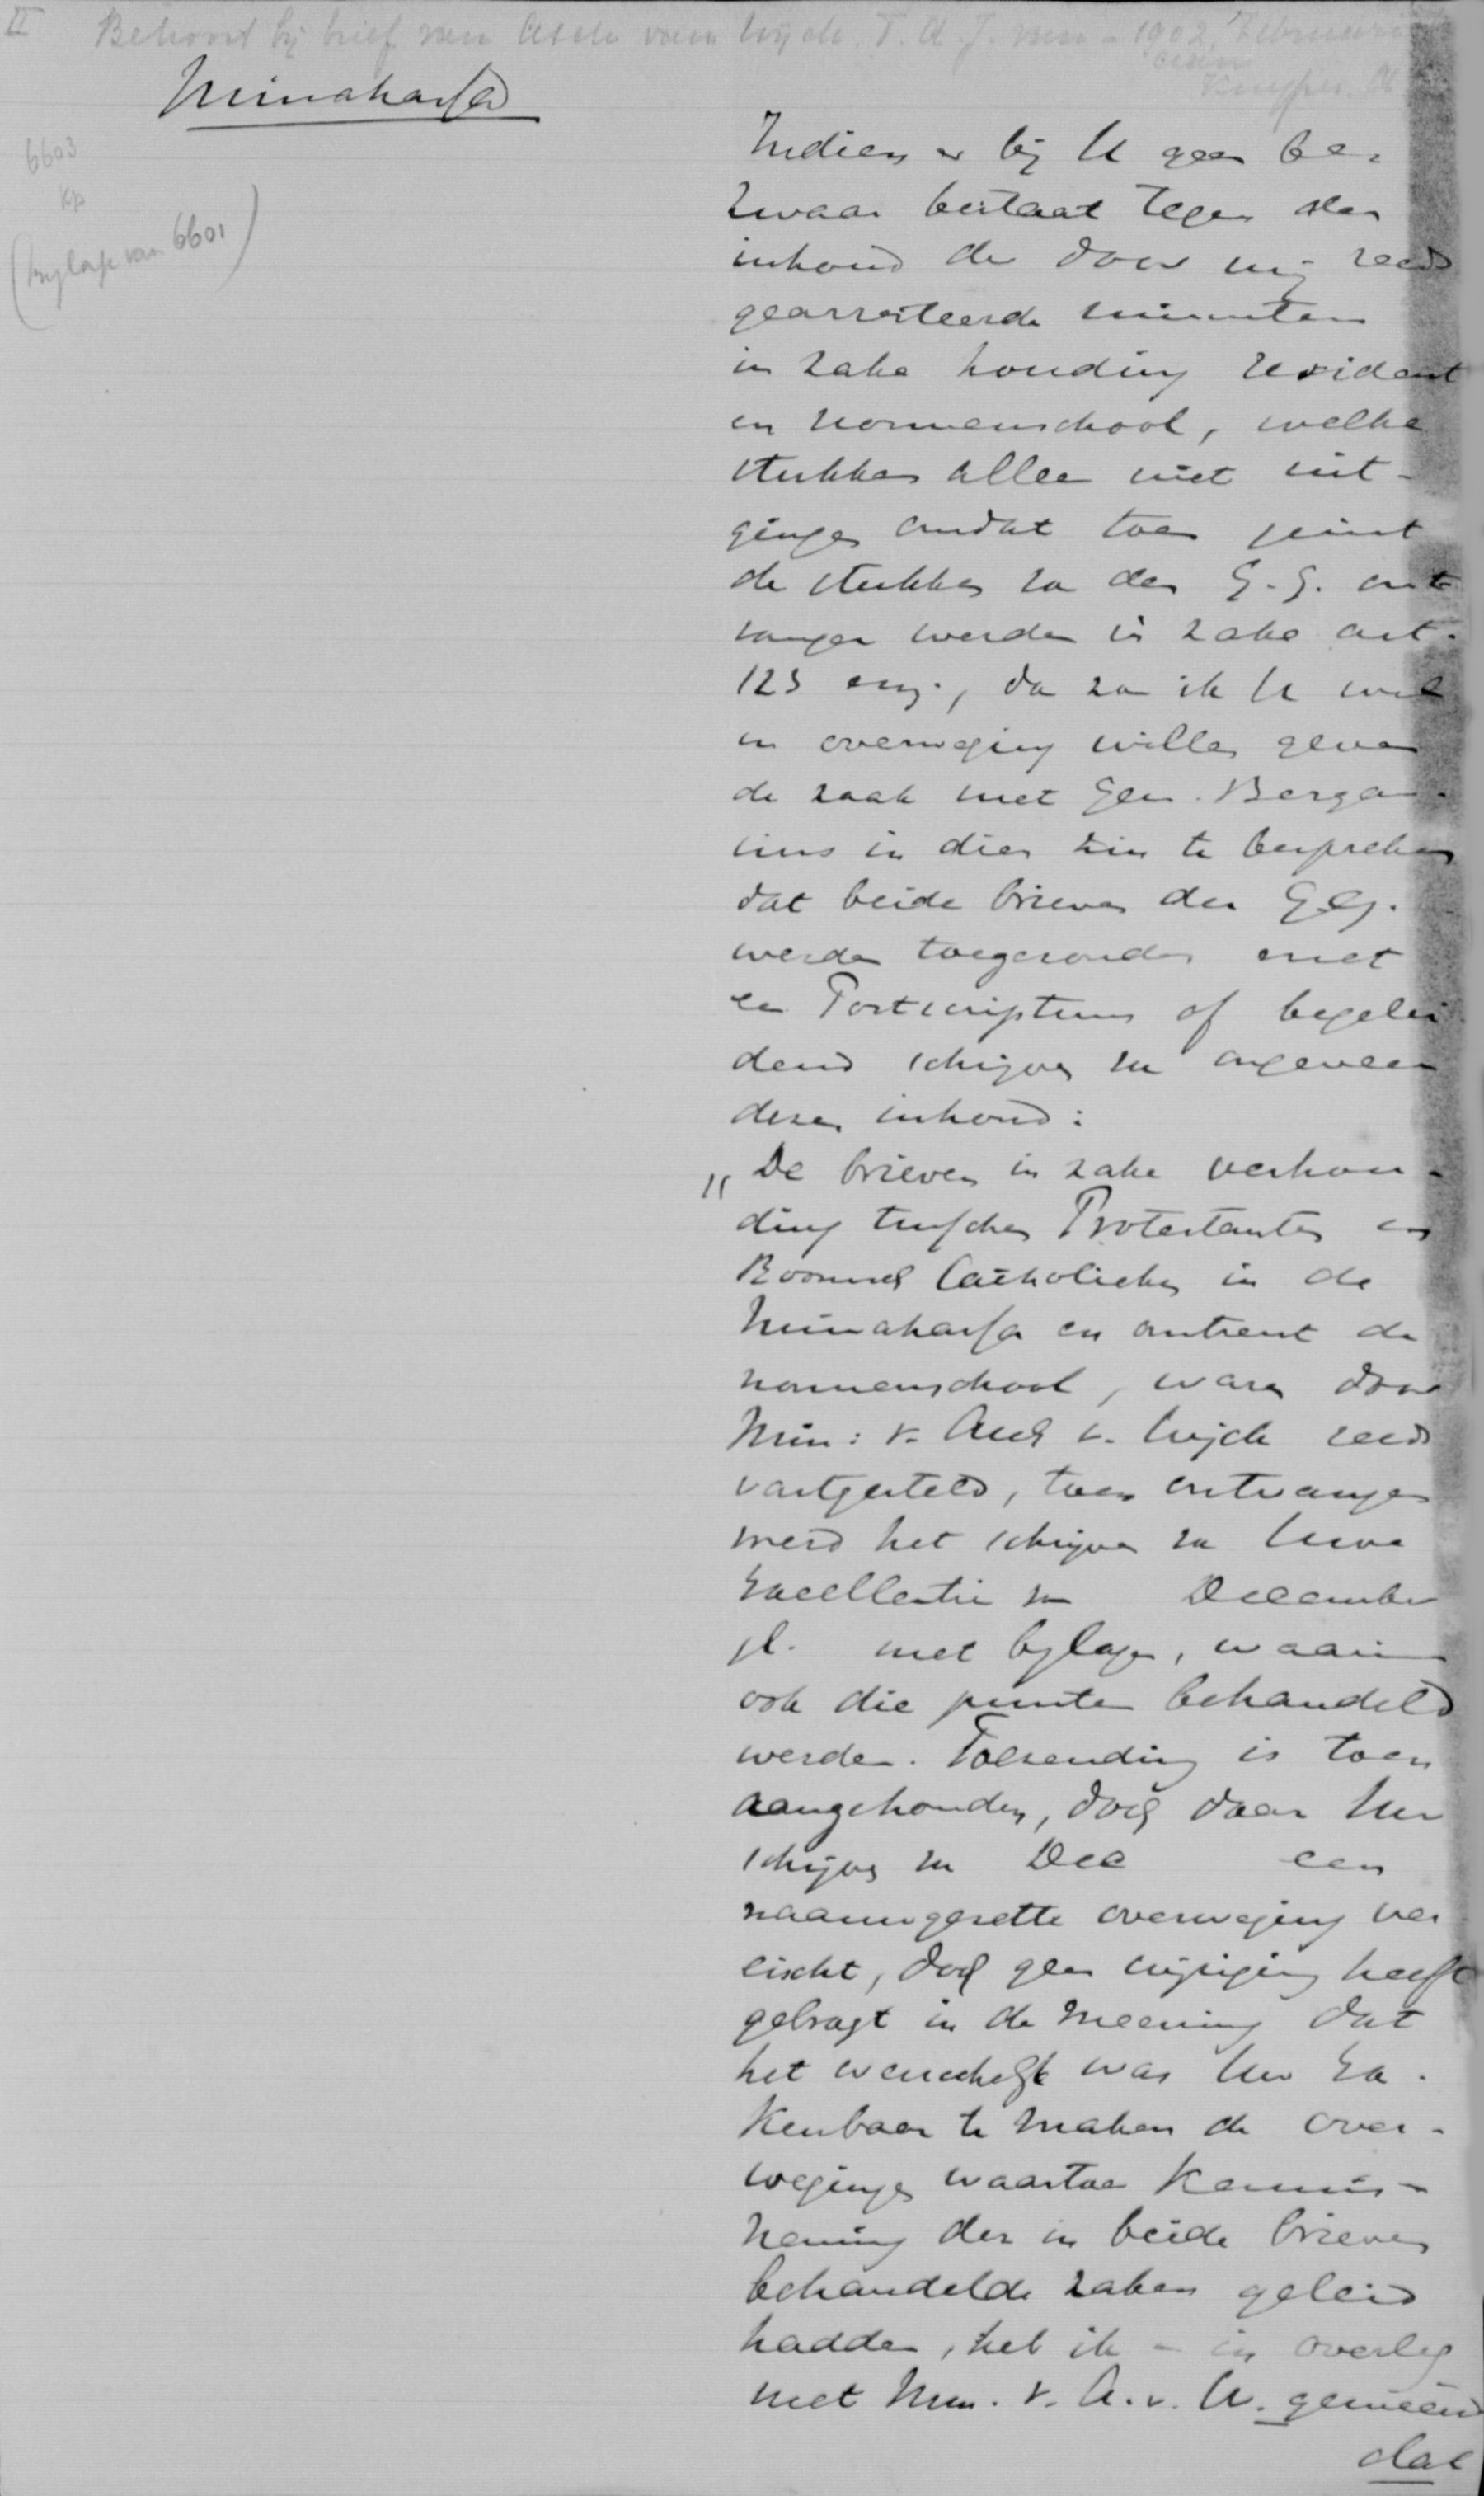 II Behoort bij brief van Asch van Wijck. T. A. J. van - 1902, Februari
aan
Kuyper. A
Minahassa
6603
Kp
(bijlage van 6601)
Indien er bij U geen be-
zwaar bestaat tegen den
inhoud der door mij reeds
gearresteerde minuten
in zake houding resident
en nonnenschool, welke
stukken alleen niet uit-
gingen omdat toen juist
de stukken van den G.G. ont-
vangen werden in zake art.
123 enz., dan zou ik U wel
in overweging willen geven
de zaak met Gen. Bergan-
sius in dien zin te bespreken
dat beide brieven den GG.
werden toegezonden met
een Postscriptum of begelei-
dend schrijven van ongeveer
dezen inhoud:
"De brieven in zake verhou-
ding tusschen Protestanten en
Roomsch Catholieken in de
Minahassa en omtrent de
nonnenschool, waren door
Min: v. Asch v. Wijck reeds
vastgesteld, toen ontvangen
werd het schrijven van Uwe
Excellentie van December
jl. met bijlagen, waarin
ook die punten behandeld
werden. Toezending is toen
aangehouden, doch daar Uw
schrijven van Dec een
naauwgezette overweging ver
eischt, doch geen wijziging heeft
gebragt in de meening dat
het wenschelijk was Uw Ex.
kenbaar te maken de over-
wegingen waartoe kennis-
neming der in beide brieven
behandelde zaken geleid
hadden, heb ik - in overleg
met Min. v. A. v. W. gemeend
dat